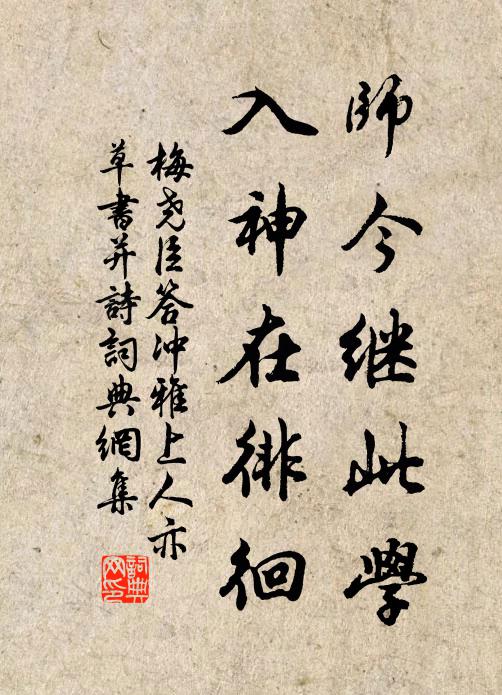 師今继此學
入神在徘徊
梅尧臣答冲雅上人亦
草書并詩詞典網集
詞典网印